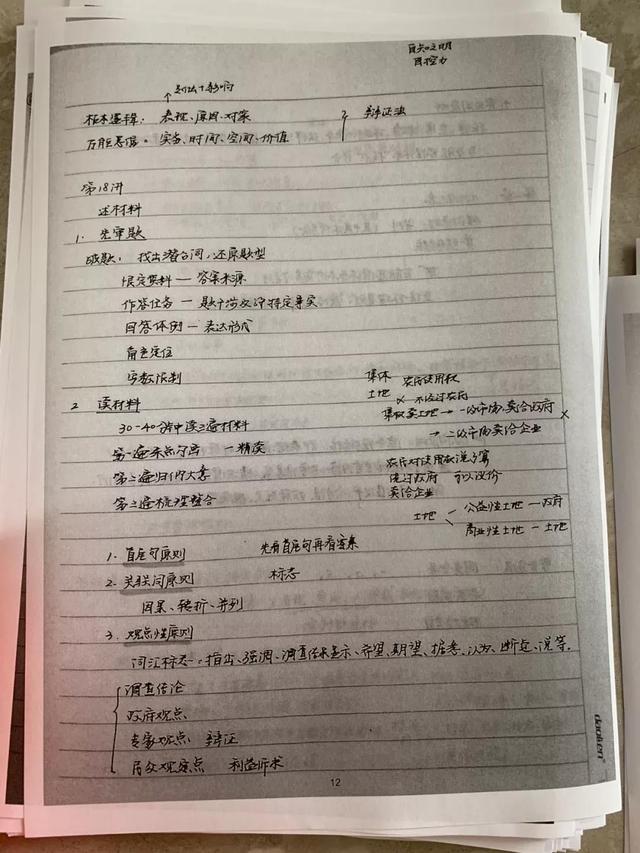 自知之明
自控力
↑划法+影响
标本逻辑：表现、原因、对策
2 辩证法
万能思维：实务、时间、空间、价值
第18讲
述材料
1. 先审题
破题：找出潜台词，还原题型
限定资料 — 答案来源
作答任务 — 题干涉及评特定事实
回答体例 — 表达形式
角色定位
字数限制
2 读材料
30-40分钟中读三遍材料
第一遍 一精读
第二遍归纳大意
第三遍梳理整合
集体 农民使用权
土地 × 不经过农府
集权卖土地 → 一级市场，卖给政府 ×
→ 二级市场卖给企业
农民对使用权说了算
绕过政府 可以议价
卖给企业
土地 < 公益性土地 — 政府
商业性土地 — 土地
1. 首尾句原则 先看首尾句再看答案
2. 关联词原则 标志
因果、转折、并列
3. 观点性原则
词汇标志：指出、强调、调查结果显示、希望、期望、据悉、认为、断定、说等.
调查结论
政府观点
专家观点 辩证
居众观点 利益诉求
daolen
12